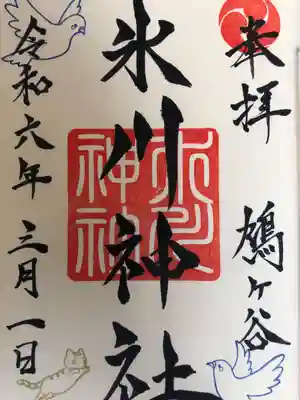 奉拝 鳩ヶ谷
氷川神社
令和六年 三月一日